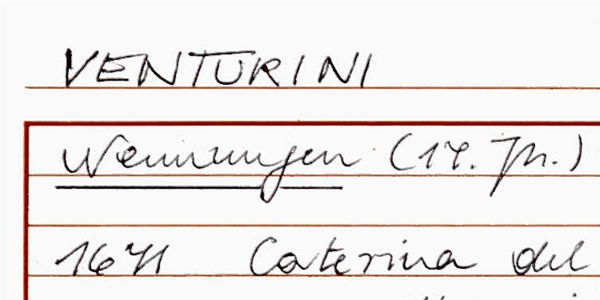 VENTURINI
Nennungen (17. Jh.)
1671 Caterina del